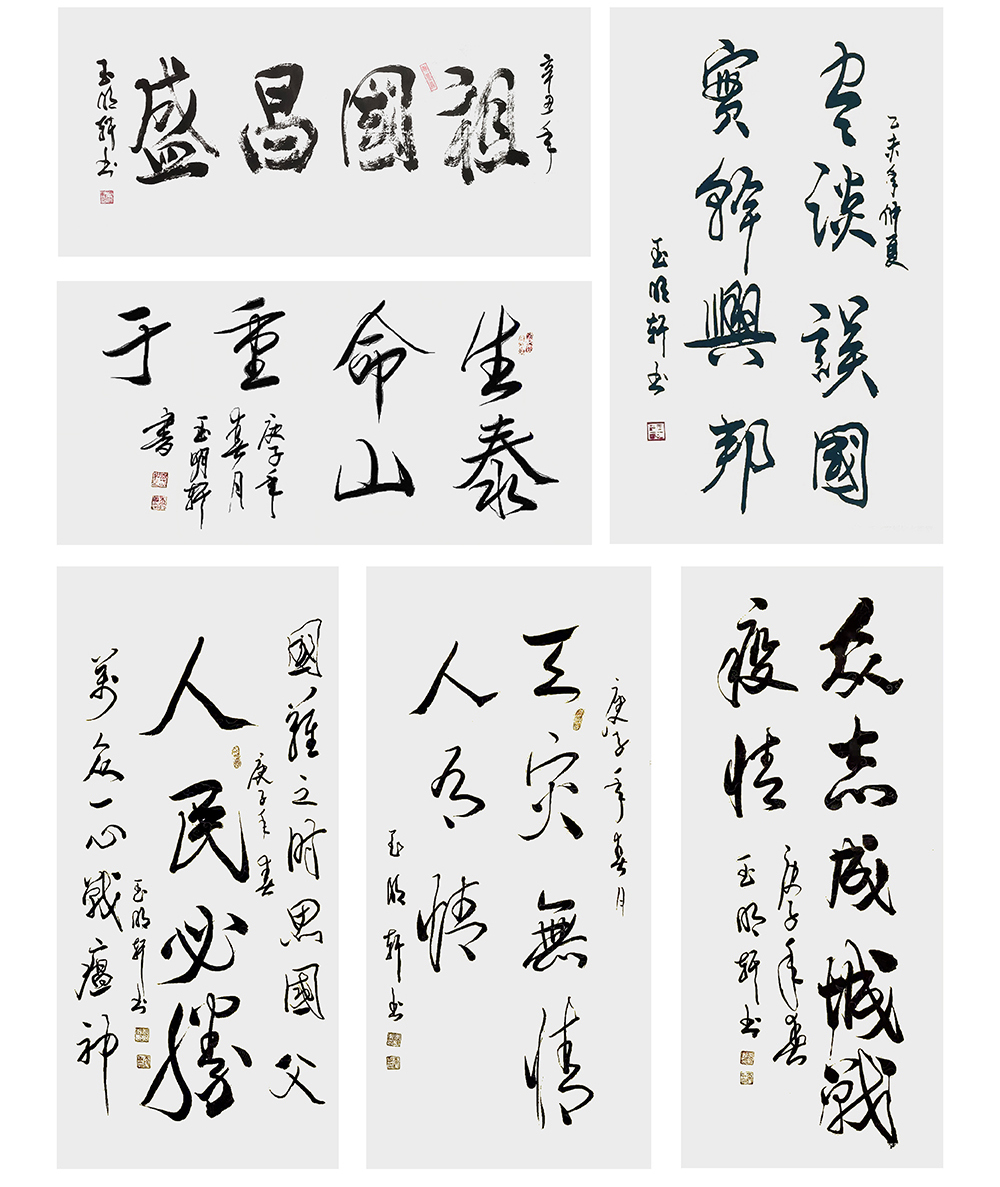 辛丑年
祖國昌盛
玉明轩书
乙未年仲夏
空谈誤國
實幹興邦
玉明轩书
生命重于
泰山
庚子年
春月
玉明轩
書
國難之时思國父
庚子年春
人民必勝
玉明轩书
萬众一心戰瘟神
庚子年春月
天灾無情
人有情
玉明轩书
众志成城戰
疫情
庚子年春
玉明轩书